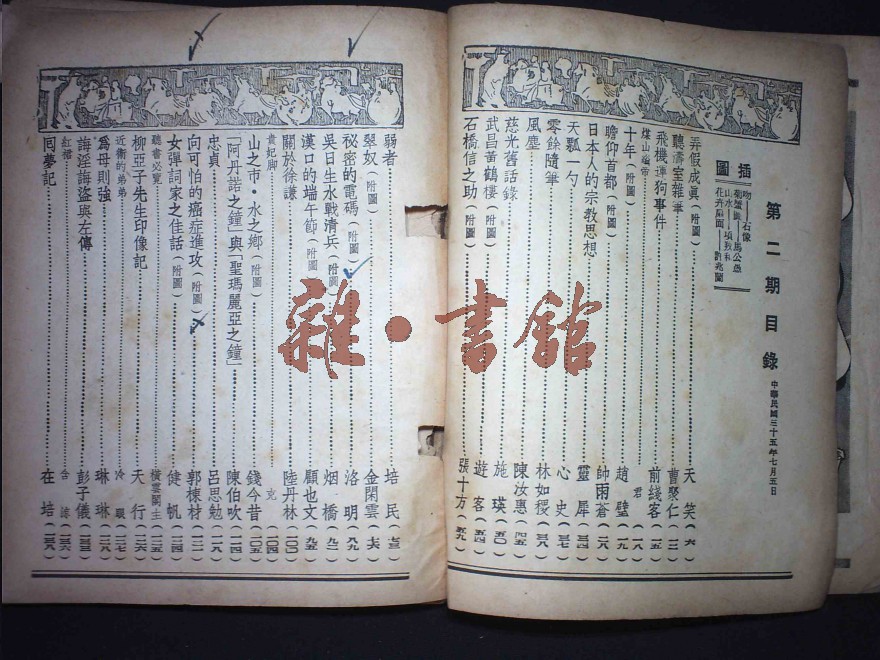 第二期目錄
中華民國三十五年七月五日
插圖
吻——石像
弄假成眞（附圖）天笑（六）
聽濤室雜筆 曹聚仁（一二）
飛機運狗事件 前綫客（一五）
煤山縊帝 君（一八）
十年（附圖）趙璧（一九）
瞻仰首都（附圖）帥雨蒼（二八）
日本人的宗敎思想 靈犀（三四）
天瓢一勺 心史（三七）
零餘隨筆 林如稷（三八）
風塵 陳汝惠（四五）
慈光舊話錄 施瑛（五〇）
武昌黃鶴樓（附圖）遊客（五四）
石橋信之助（附圖）張十方（五九）
弱者 培民（七三）
翠奴（附圖）金閑雲（七六）
秘密的電碼（附圖）洛明（八九）
吳日生水戰清兵（附圖）烟橋（九二）
漢口的端午節（附圖）顧也文（九五）
關於徐謙 陸丹林（一〇〇）
貴妃脚 克
山之市・水之鄉（附圖）錢今昔（一〇五）
「阿丹諾之鐘」與「聖瑪麗亞之鐘」 陳伯吹（一一四）
忠貞 呂思勉（一一八）
向可怕的癌症進攻（附圖）郭棟材（一二二）
女彈詞家之佳話（附圖）健帆（一二四）
聽書必覽 橫雲閣主（一二五）
柳亞子先生印像記 天行（一二六）
近衛的弟弟 冷眼（一二七）
爲母則強 琳琳（一二八）
誨淫誨盜與左傳 彭子儀（一三三）
紅搖
同夢記 在培（一三八）
雜・書館